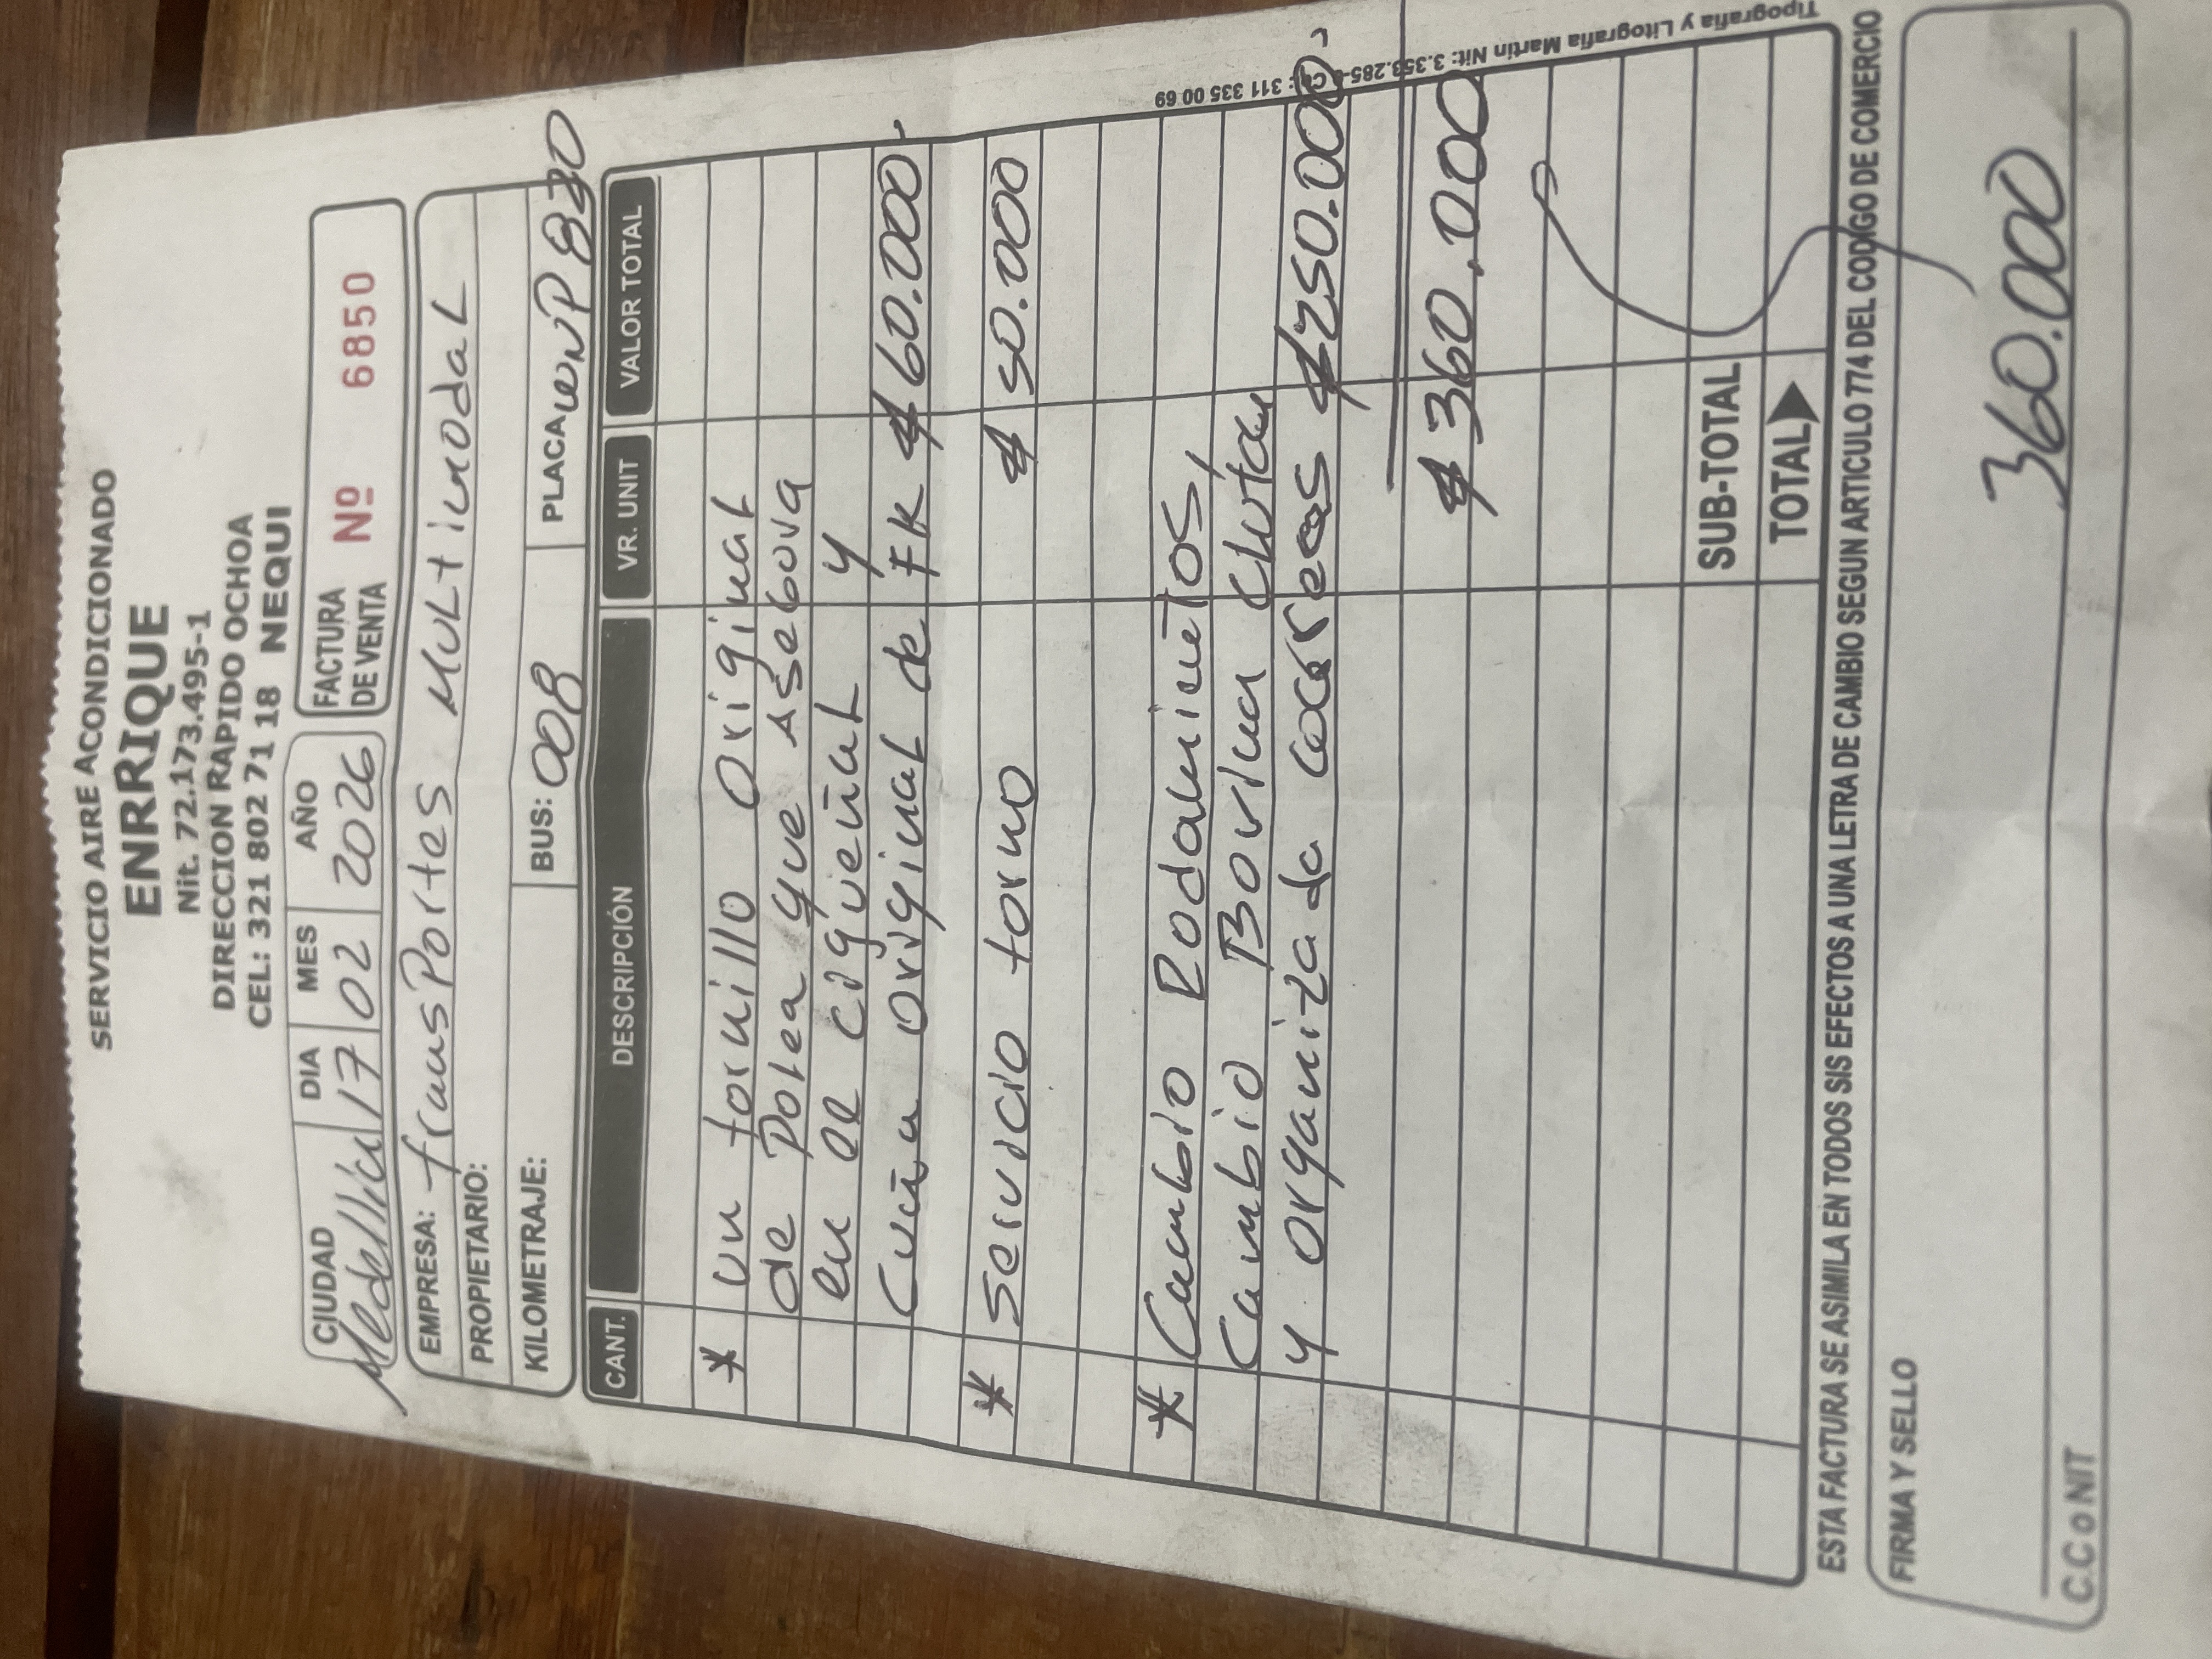 SERVICIO AIRE ACONDICIONADO
ENRRIQUE
Nit. 72.173.495-1
DIRECCION RAPIDO OCHOA
CEL: 321 802 71 18 NEQUI
CIUDAD DIA MES AÑO
Medellin 17 02 2026
FACTURA
DE VENTA Nº 6850
EMPRESA: transPortes MULTimodaL
PROPIETARIO:
KILOMETRAJE: BUS: 008 PLACA WNP 830
CANT. DESCRIPCIÓN VR. UNIT VALOR TOTAL
* un tornillo original
de Polea que Asegura
en el cigueñaL y
Cuña original de FK $ 60.000
* servicio torno $ 50.000
* Cambio Rodamientos,
Cambio Bovina Clutch
y organizada correas $ 250.000
$ 360.000
SUB-TOTAL
TOTAL
Tipografia y Litografia Martin Nit: 3.353.285- Cel: 311 335 00 69
ESTA FACTURA SE ASIMILA EN TODOS SIS EFECTOS A UNA LETRA DE CAMBIO SEGUN ARTICULO 774 DEL CODIGO DE COMERCIO
FIRMA Y SELLO
360.000
C.C o NIT